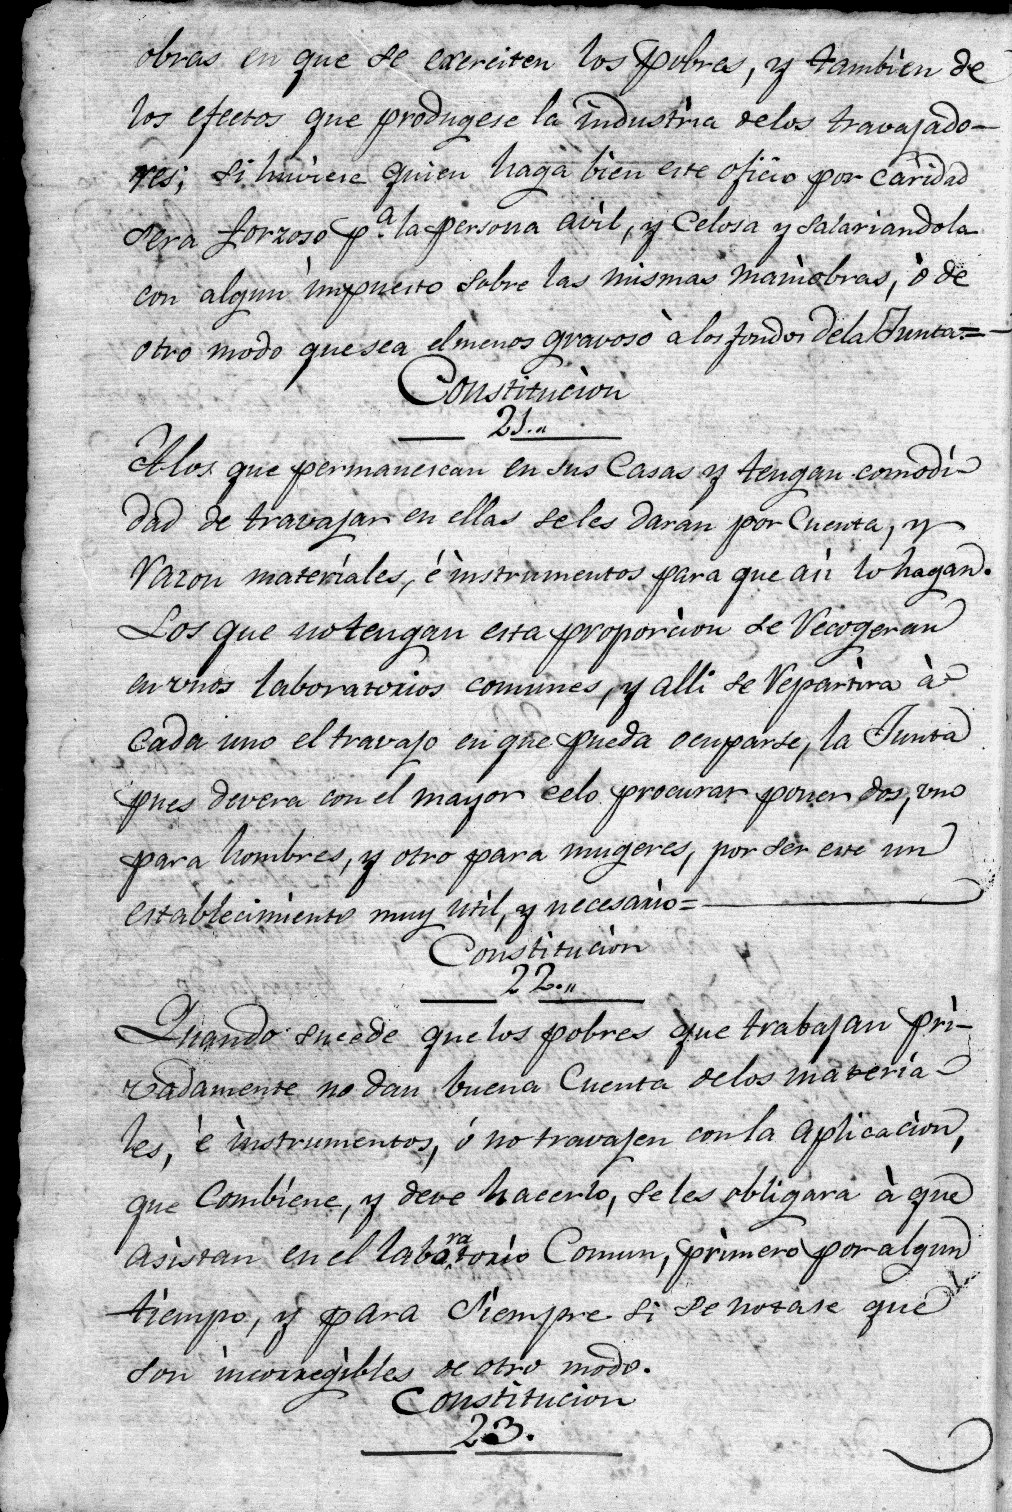 obras en que se exerciten los pobres, y tambien de
los efectos que produgese la industria delos travajado-
res; si huviese quien haga bien este oficio por caridad
sera forzoso p.ª la persona avil, y celosa y salariandola
con algun impuesto sobre las mismas maniobras, ò de
otro modo que sea el menos gravoso à los fondos dela Junta=
Constitucion
21.,,
A los que permanescan en sus Casas y tengan comodi-
dad de travajar en ellas seles daran por Cuenta, y
razon materiales, é instrumentos para que asi lo hagan.
Los que no tengan esta proporcion se recogeran
en unos laboratorios comunes, y alli se repartira à
cada uno el travajo en que pueda ocuparse, la Junta
pues devera con el mayor celo procurar poner dos, uno
para hombres, y otro para mugeres, por ser este un
establecimiento muy util, y necesario=
Constitucion
22.,,
Quando sucede que los pobres que trabajan pri-
vadamente no dan buena Cuenta delos materia-
les, é instrumentos, ó no travajen con la aplicacion,
que Combiene, y deve hacerlo, seles obligara à que
asistan en el laboratorio Comun, primero por algun
tiempo, y para siempre si se notase que
son incorregibles de otro modo.
Constitucion
23.